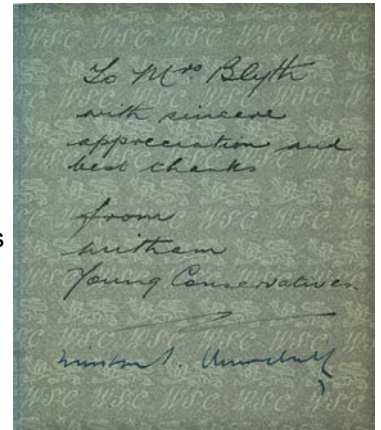 To Mrs Blyth
with sincere
appreciation and
best thanks
from
Witham
Young Conservatives.
Winston S. Churchill
s